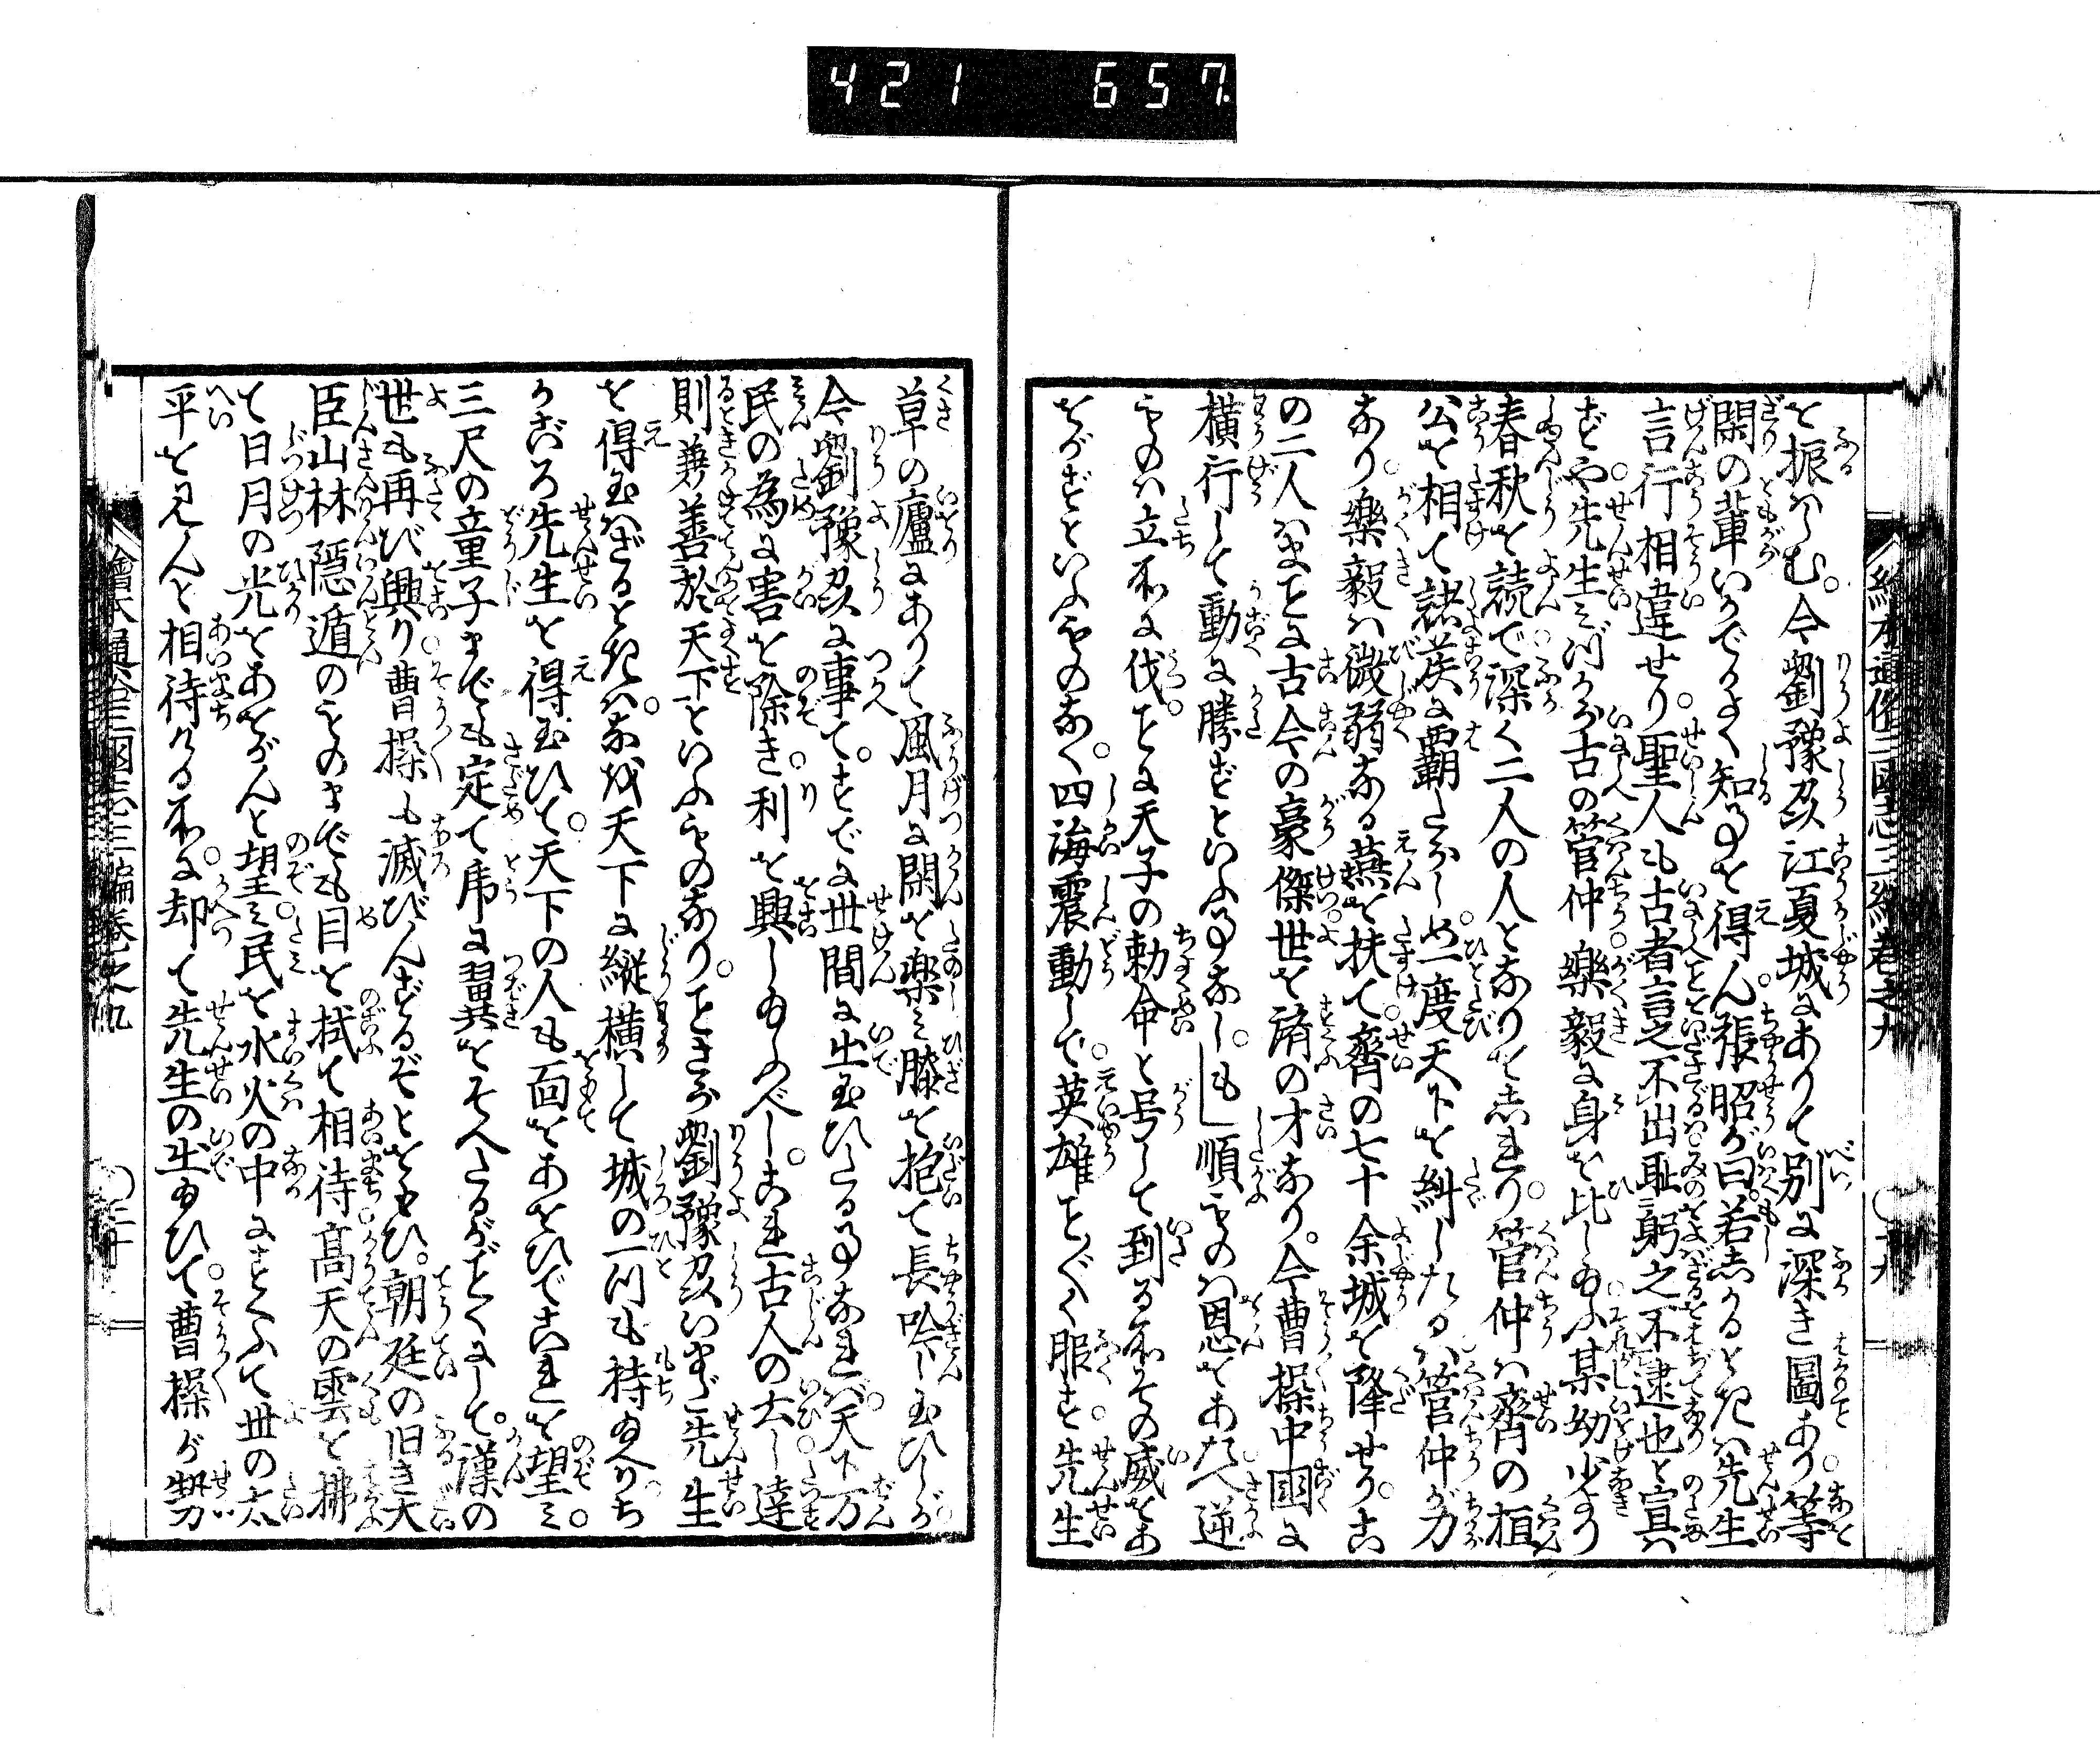 421 657
繪本通俗三國志三編卷之九 ○十九
を振はしむ。今劉豫州江夏城にありて別に深き圖あり。等
閑の輩いかでかよく知ることを得ん。張昭が曰。若しかるときは先生
言行相違せり。聖人も古者言之不出耻躬之不逮也と宣は
ずや。先生みづから古の管仲樂毅に身を比し給ふ。某幼少より
春秋を読で深く二人の人となりをしれり。管仲は齊の桓
公を相て諸侯に覇たらしめ一度天下を糾したるは管仲が力
なり。樂毅は微弱なる燕を扶て。齊の七十余城を降せり。こ
の二人はまことに古今の豪傑世を濟の才なり。今曹操中國に
横行して動に勝ずといふことなし。もし順ものは恩をあたへ逆
ものは立所に伐。ことに天子の勅命と号して到る所その威をあ
をがずといふものなく。四海震動して。英雄ことごとく服す。先生
草の廬にありて風月に閑を楽み膝を抱て長吟し玉ひしが
今劉豫州に事て。すでに世間に出玉ひたることなれば。天下万
民の為に害を除き。利を興し給ふべし。これ古人の去し達
則兼善於天下といふものなり。ことさら劉豫州いまだ先生
を得玉はざるときは。なほ天下に縦横して城の一つも持給へりち
かごろ先生を得玉ひて。天下の人も面をあをひでこれを望み。
三尺の童子までも定て乕に翼をそへたるがごとくにして。漢の
世も再び興り。曹操も滅びんずるぞとをもひ。朝廷の旧き大
臣山林隠遁のものまでも目を拭て相待。髙天の雲を拂
て日月の光をあをがんと望み。民を水火の中にすくふて世の太
平を見んと相待ける所に。却て先生の出給ひて。曹操が勢
繪本通俗三國志三編卷之九 ○二十